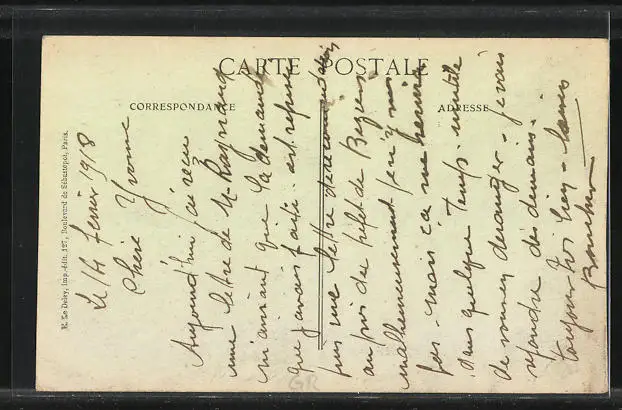 CARTE POSTALE
CORRESPONDANCE
ADRESSE
E. Le Deley, Imp.-édit. 127, Boulevard de Sébastopol, Paris.
Le 14 février 1918
Chère Yvonne
Aujourd'hui j'ai reçu
une lettre de Mr Raynaud
m'avisant que la demande
que j'avais faite est
puis une lettre de recommandation
auprès du préfet de Beziers
malheureusement j'en
pas - mais ça me
dans quelque temps - inutile
de vous déranger - je vais
répondre dès demain -
toujours très bien - baisers
GR